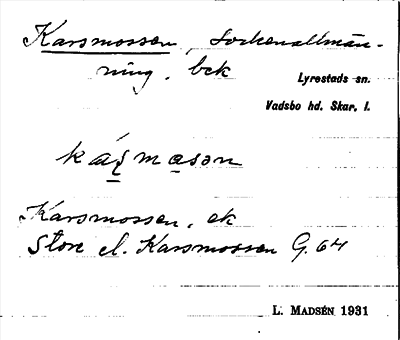 Karsmossen, sockenallmän-
ning, bek
Lyrestads sn.
Vadsbo hd. Skar. l.
káʂmosən
Karsmossen, ek
Store el. Karsmossen G. 64
L. MADSÉN 1931